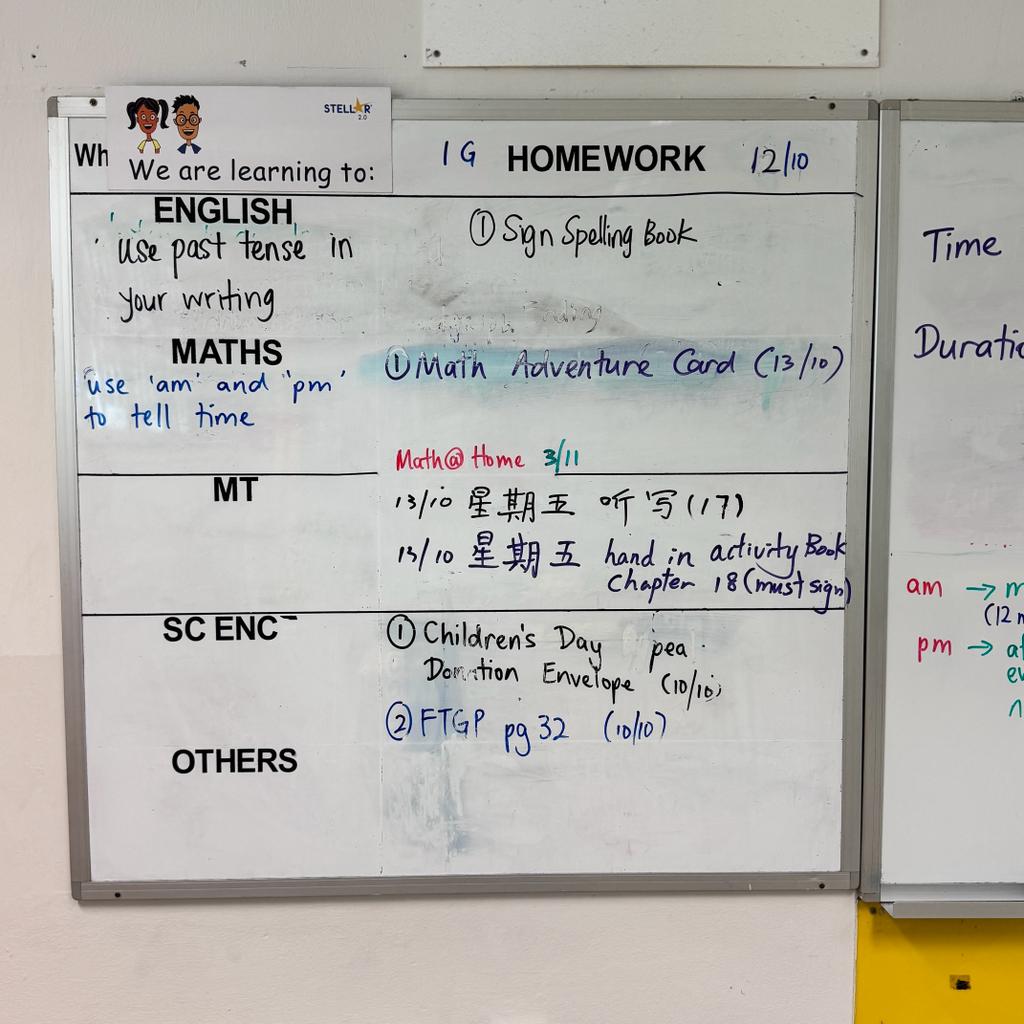 STELLAR 2.0
Wh
We are learning to:
1G HOMEWORK 12/10
ENGLISH
use past tense in
your writing
① Sign Spelling Book
MATHS
use 'am' and 'pm'
to tell time
① Math Adventure Card (13/10)
Math@Home 3/11
MT
13/10 星期五 听写(17)
13/10 星期五 hand in activity Book
Chapter 18 (must sign)
SC ENC
① Children's Day pea
Donation Envelope (10/10)
② FTGP pg 32 (10/10)
OTHERS
Time
Duratio
am → m
(12 m
pm → af
ev
n